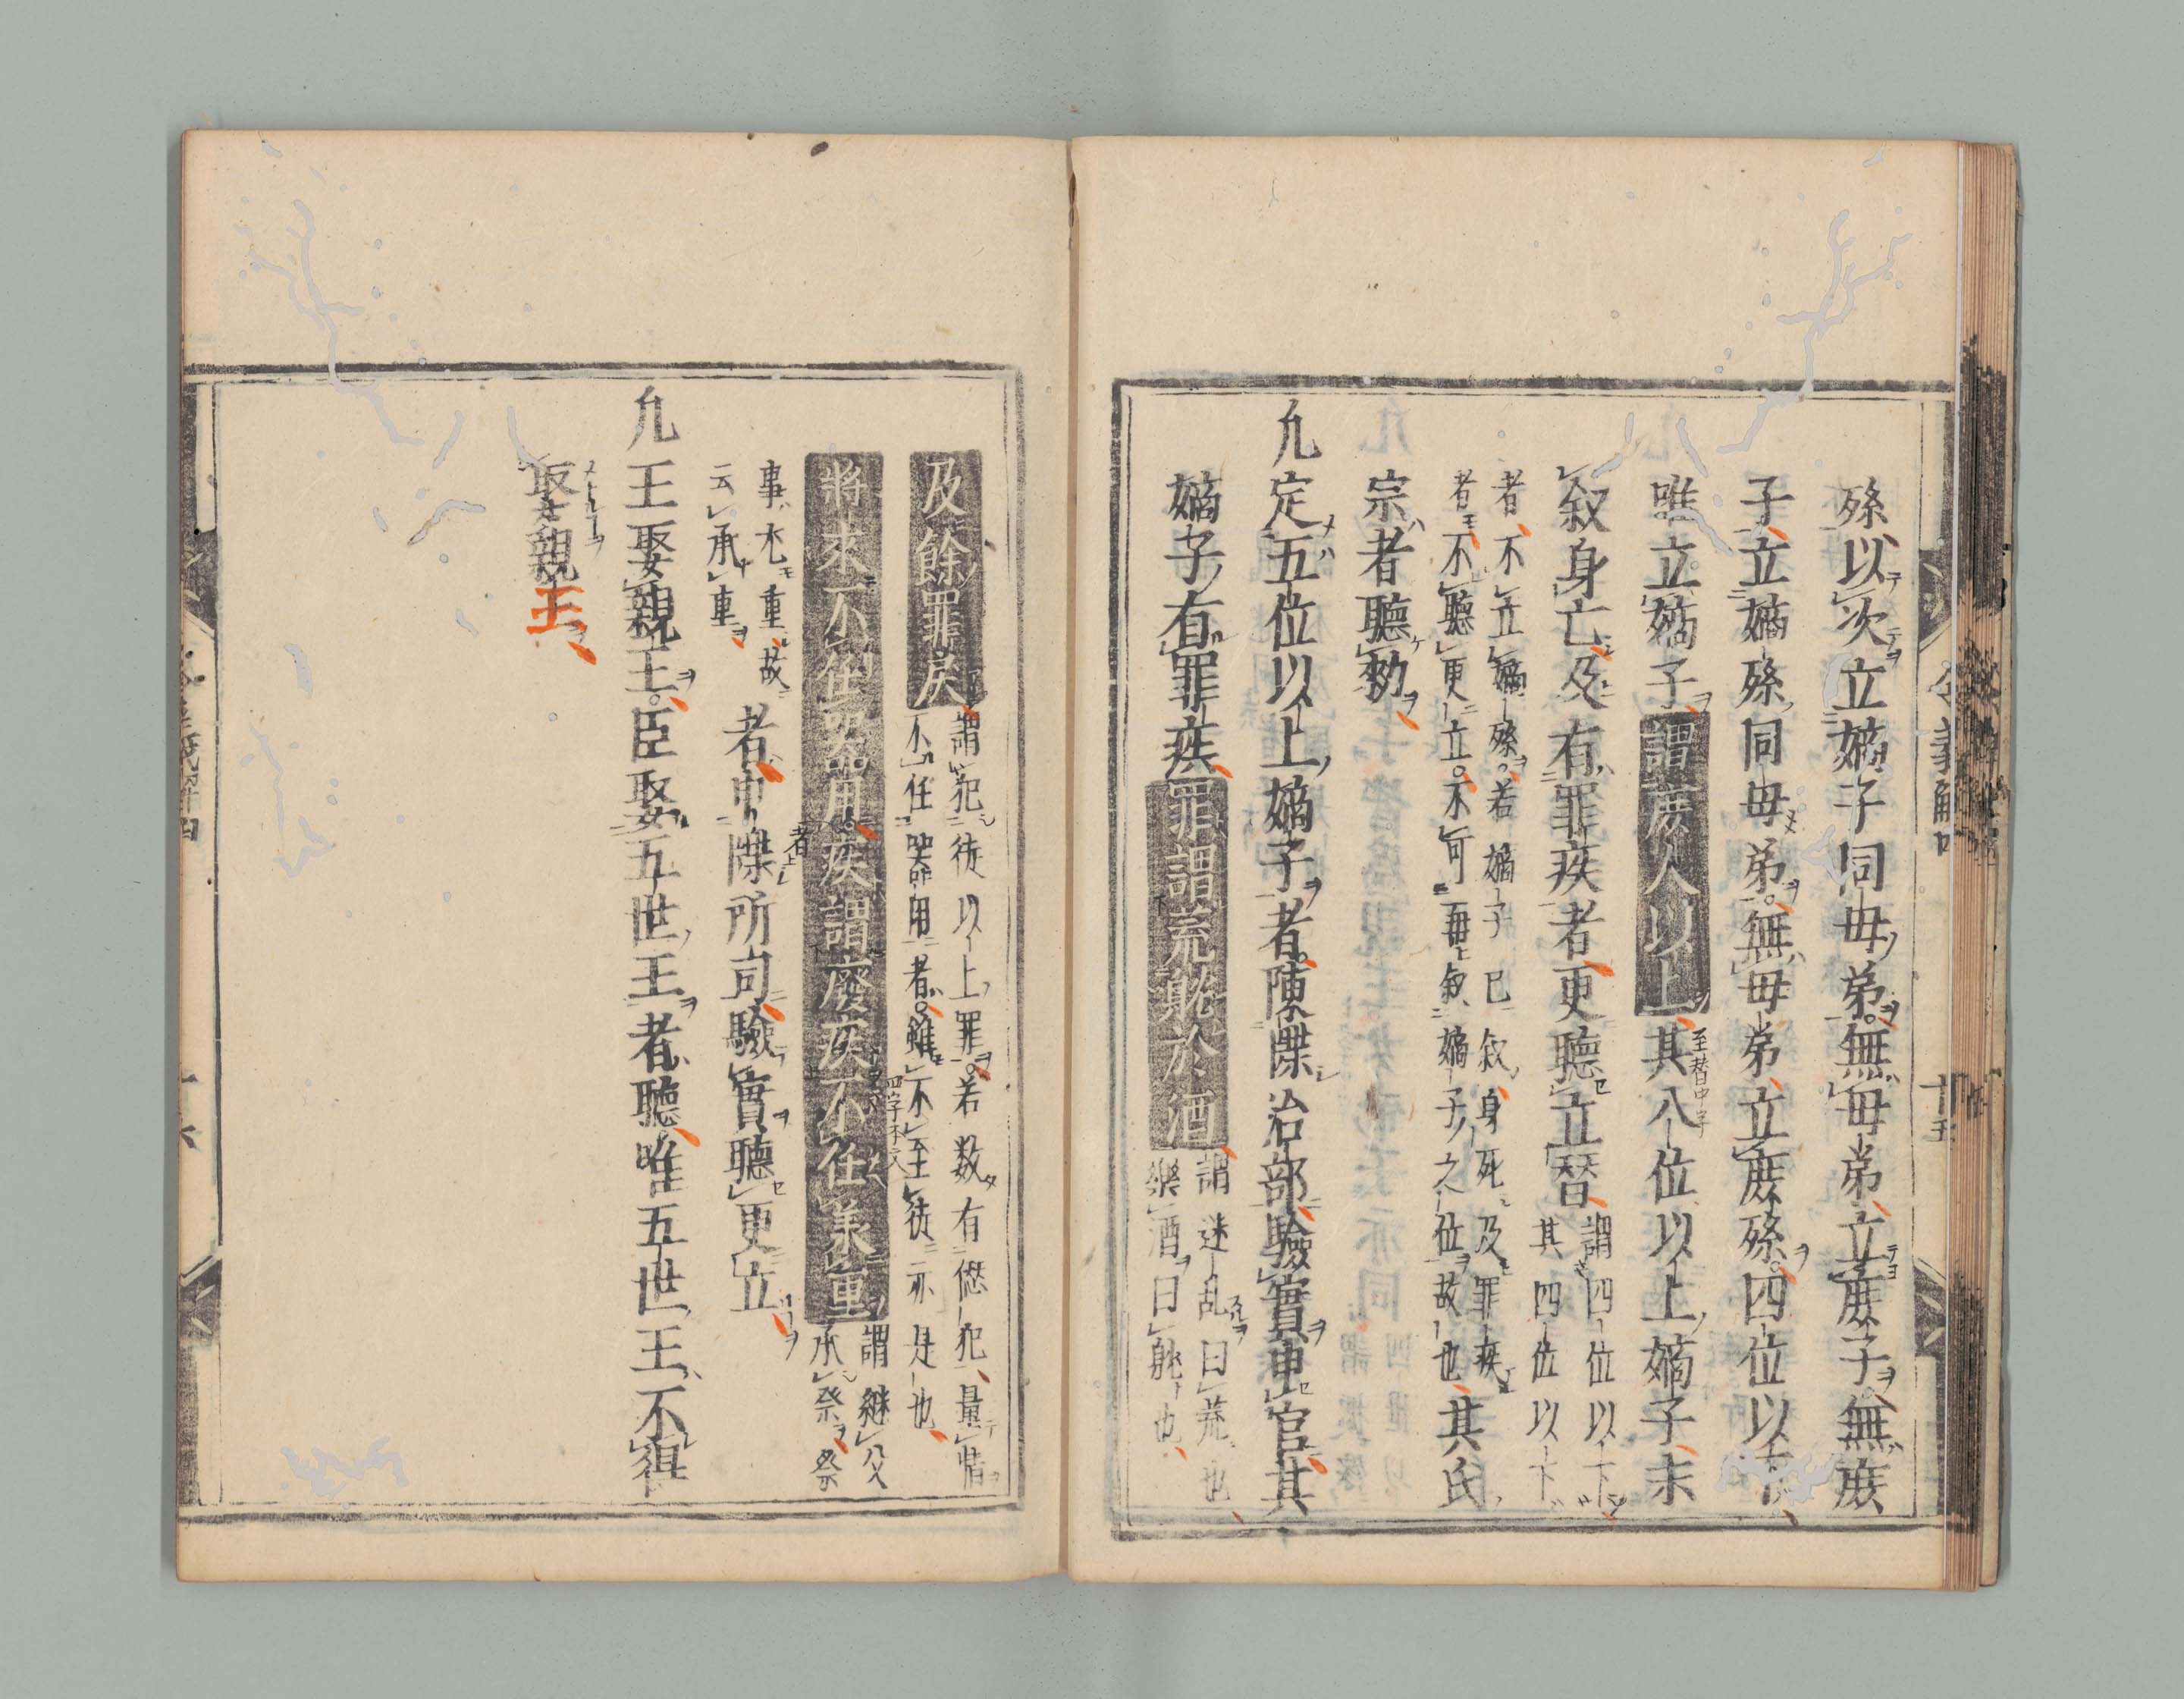 孫以次立嫡子同母弟無母弟立庶子無庶
子立嫡孫同母弟無母弟立庶孫四位以下
唯立嫡子謂庶人以上其八位以上嫡子未
叙身亡及有罪疾者更聴立替謂四位以下
其四位以下
者不立嫡孫若嫡子已叙身死及罪疾
者不聴更立不可再叙嫡子之位故也其氏
宗者聴勅
凢定五位以上嫡子者陳牒治部驗實申官其
嫡子有罪疾罪謂荒躭於酒謂迷乱曰荒也
樂酒曰躭也
及餘罪戻謂犯徒以上罪若数有愆犯量情
不任器用者雖不至徒亦是也
將来不任器用疾謂癈疾不任羕重謂継父
承祭祭
事尤重故
云承重
者申牒所司驗實聴更立
凢王娶親王臣娶五世王者聴唯五世王不得
娶親王
令義解四
十五
至替中字
四字本文
者上